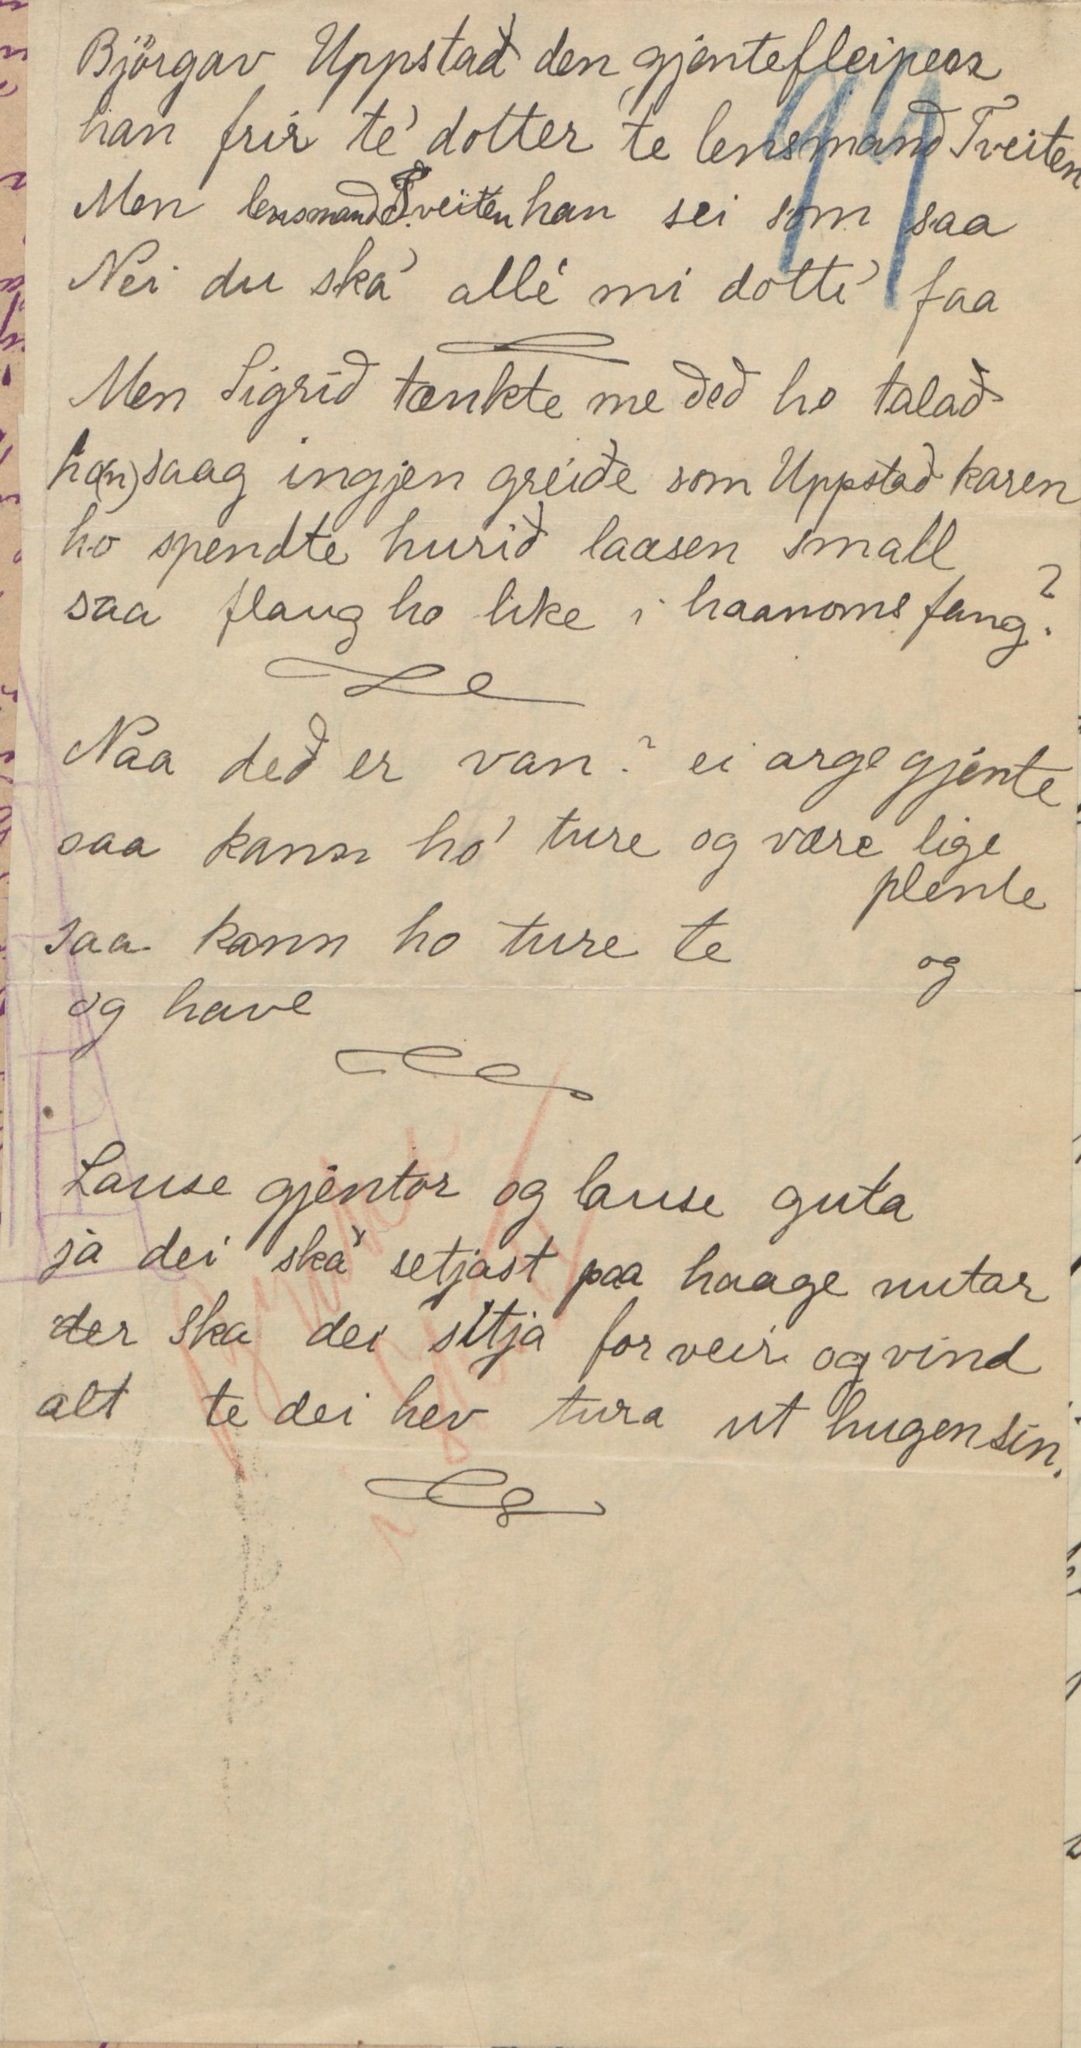 Björgav Uppstað den gjentefleiparen
han frir te' dotter te lensmanð Tveiten
Men lensmanð Tveiten han sei som saa
Nei du ska' alle' mi dotte' faa
Men Sigrið tænkte me ðeð ho talað
ho(n) saag ingjen greiðe som Uppstað karen
ho spendte hurið laasen small
saa flaug ho like i haanoms fang?
Naa deð er van? ei arge gjente
saa kann ho' ture og være lige
plente
saa kann ho ture te og
og have
Lause gjentor og lause guta
ja dei ska' setjast paa haage nutar
der ska dei sitja for veir og vind
alt te dei hev tura ut hugen sin.